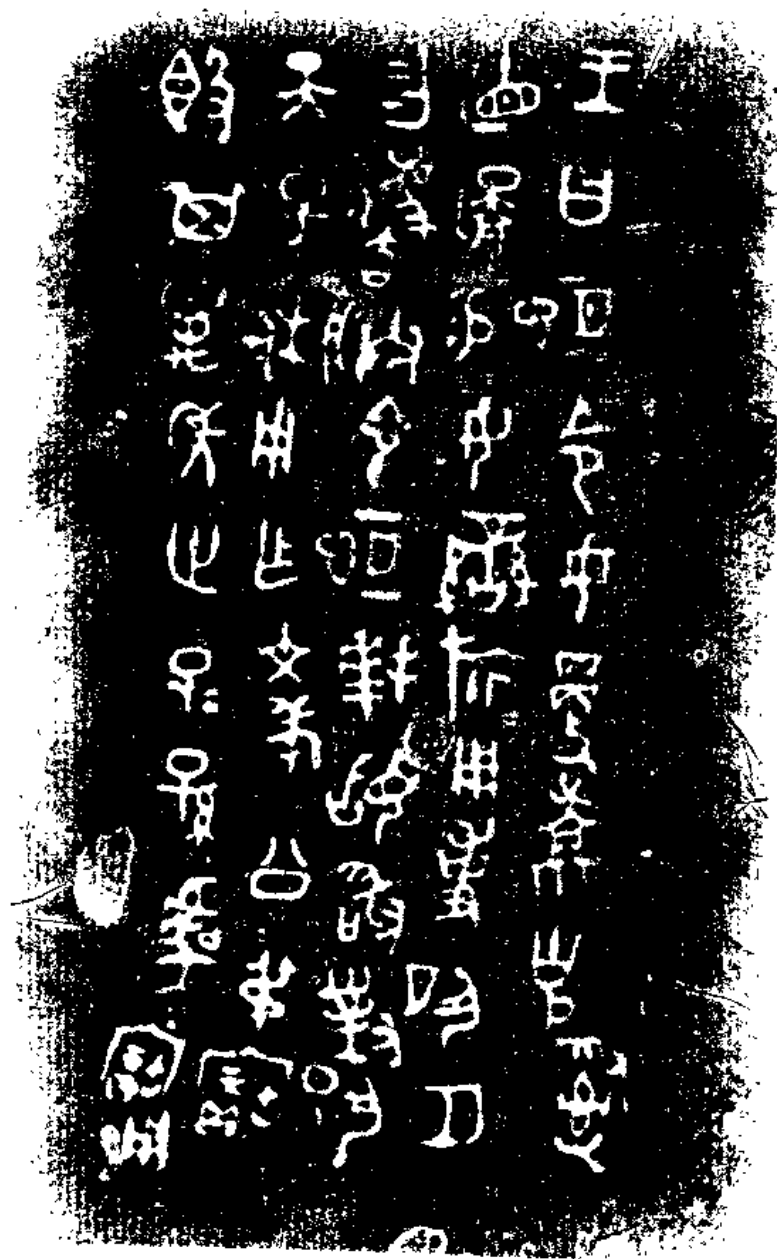 王曰恒令女更𡄹克司直
啚易女䜌旂用事夙夕
勿灋朕令恒拜𩒨敢對揚
天子休用乍文考公叔寶
𣪘其萬年世子子孫虞寶用